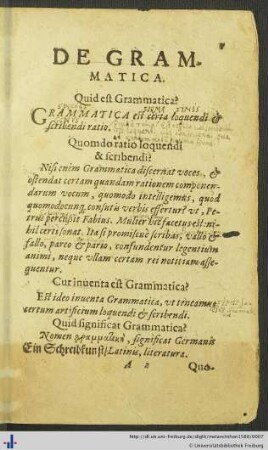 DE GRAM-
MATICA.
Quid est Grammatica?
GRAMMATICA est certa loquendi &
scribendi ratio.
Quomodo ratio loquendi
& scribendi?
Nisi enim Grammatica discernat voces, &
ostendat certam quandam rationem componen-
darum vocum, quomodo intelligemus, quod
quomodocunq; consutis verbis effertur? vt, Pe-
trus percussit Fabius. Mulier est facetus est: ni-
hil certi sonat. Ita si promiscuè scribas, vallo &
fallo, pareo & pario, confundentur legentium
animi, neque vllam certam rei notitiam asse-
quentur.
Cur inuenta est Grammatica?
Est ideo inuenta Grammatica, vt teneamus
certum artificium loquendi & scribendi.
Quid significat Grammatica?
Nomen γραμματικὴ, significat Germanis
Ein Schreibkunst/ Latinis, literatura.
A 2 Quo-
http://dl.ub.uni-freiburg.de/diglit/melanchthon1560/0007
© Universitätsbibliothek Freiburg